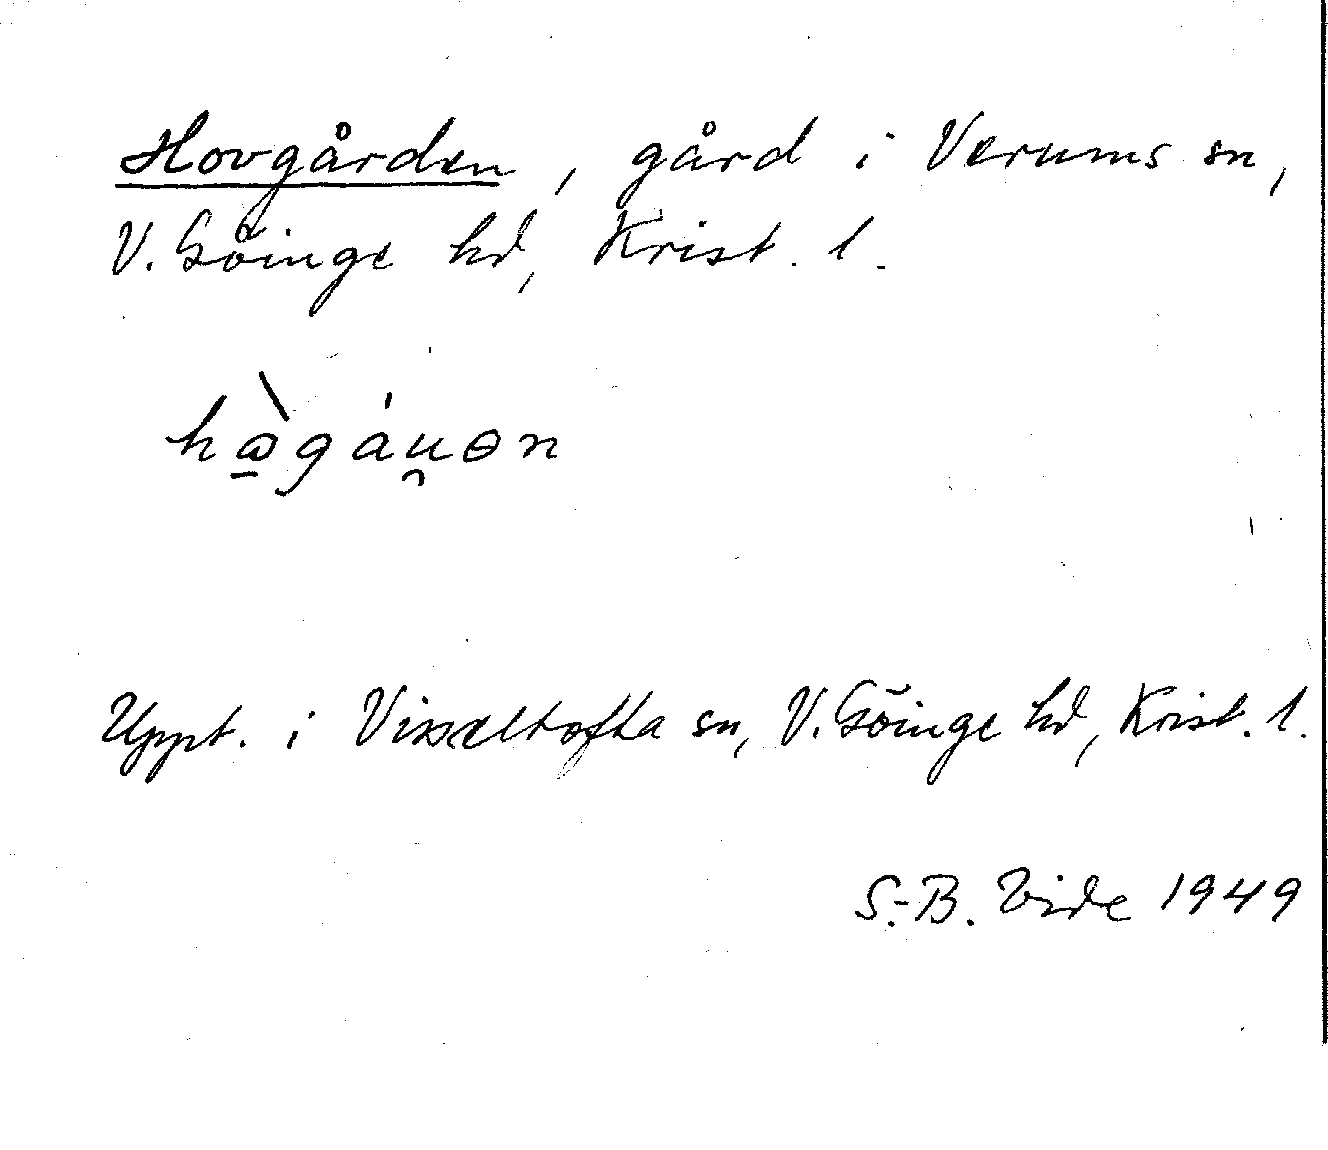 Hovgården, gård i Verums sn,
V. Göinge hd, Krist. l.
Uppt. i Visseltofta sn, V. Göinge hd, Krist. l.
S.-B. Vide 1949